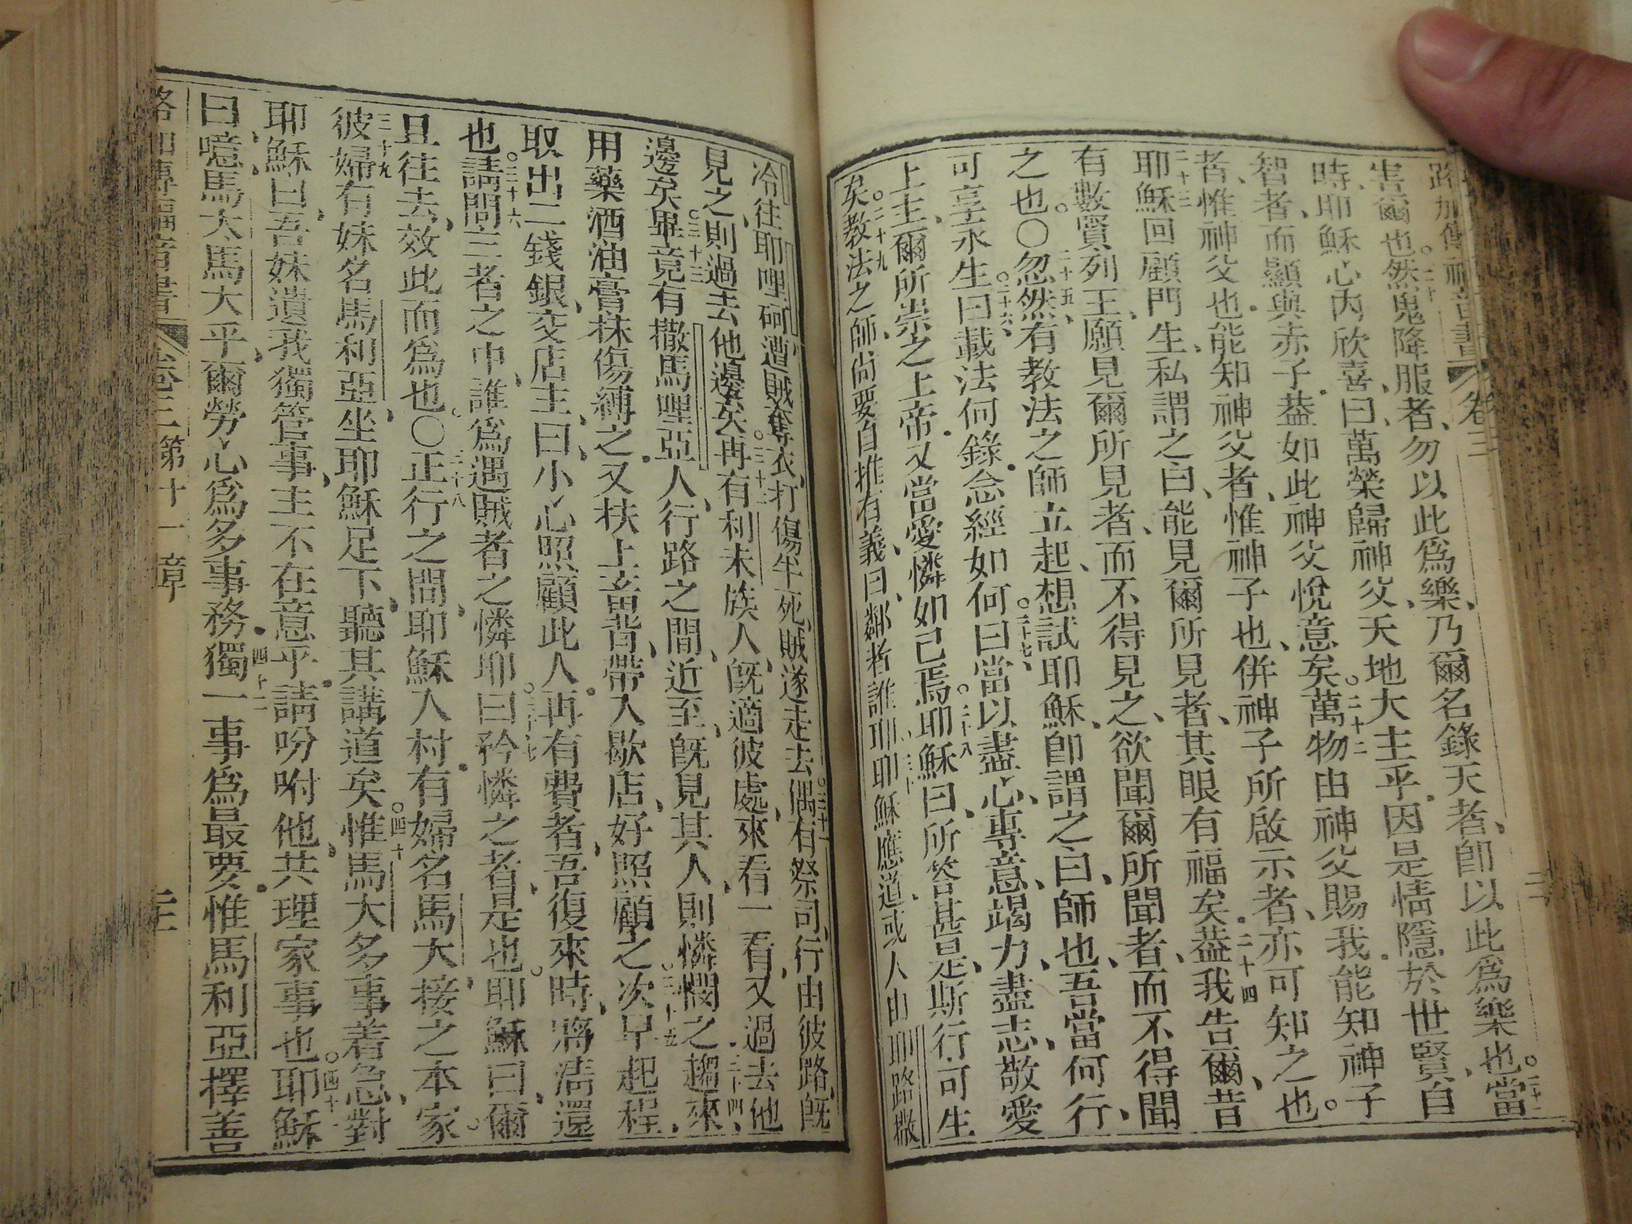 路加傳福音書 卷三 二
害爾也然鬼降服者勿以此爲樂乃爾名錄天者卽以此爲樂也二十一當
時耶穌心內欣喜曰萬榮歸神父天地大主乎因是情隱於世賢自
智者而顯與赤子葢如此神父悅意矣二十二萬物由神父賜我能知神子
者惟神父也能知神父者惟神子也併神子所啟示者亦可知之也
二十三耶穌回顧門生私謂之曰能見爾所見者其眼有福矣二十四葢我告爾昔
有數賢列王願見爾所見者而不得見之欲聞爾所聞者而不得聞
之也○二十五忽然有教法之師立起想試耶穌卽謂之曰師也吾當何行
可享永生二十六曰載法何錄念經如何二十七曰當以盡心專意竭力盡志敬愛
上主爾所崇之上帝又當愛憐如己焉二十八耶穌曰所答甚是斯行可生
矣二十九教法之師尚要自推有義曰鄰者誰耶三十耶穌應道或人由耶路撒
冷往耶哩砢遭賊奪衣打傷半死賊遂走去三十一偶有祭司行由彼路旣
見之則過去他邊矣三十二再有利未族人旣適彼處來看一看又過去他
邊矣三十三畢竟有撒馬哩亞人行路之間近至旣見其人則憐憫之三十四趨來
用藥酒油膏抹傷縛之又扶上畜背帶入歇店好照顧之三十五次早起程
取出二錢銀交店主曰小心照顧此人再有費者吾復來時將淸還
也三十六請問三者之中誰爲遇賊者之憐耶三十七曰矜憐之者是也耶穌曰爾
且往去效此而爲也○三十八正行之間耶穌入村有婦名馬大接之本家
三十九彼婦有妹名馬利亞坐耶穌足下聽其講道矣四十惟馬大多事着急對
耶穌曰吾妹遺我獨管事主不在意乎請吩咐他共理家事也四十一耶穌
曰噫馬大馬大乎爾勞心爲多事務四十二獨一事爲最要惟馬利亞擇善
路加傳福音書 卷三 第十一章 二